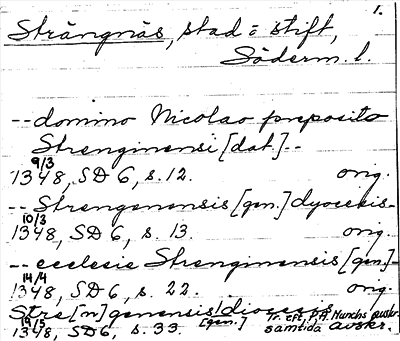 1.
Strängnäs, stad o stift,
Söderm. l.
-- domino Nicolao preposito
Strenginensi [dat.] --
9/3
1348, SD 6, s. 12. orig.
-- Strengenensis [gen.] dyocesis -
10/3
1348, SD 6, s. 13. orig.
-- ecclesie Strenginensis [gen.] -
14/4
1348, SD 6, s. 22. orig.
Stre[n]genensis [gen.] dioces
19/5
1348, SD 6, s. 33. Tr. eft. P.A. Munchs
samtida avskr.